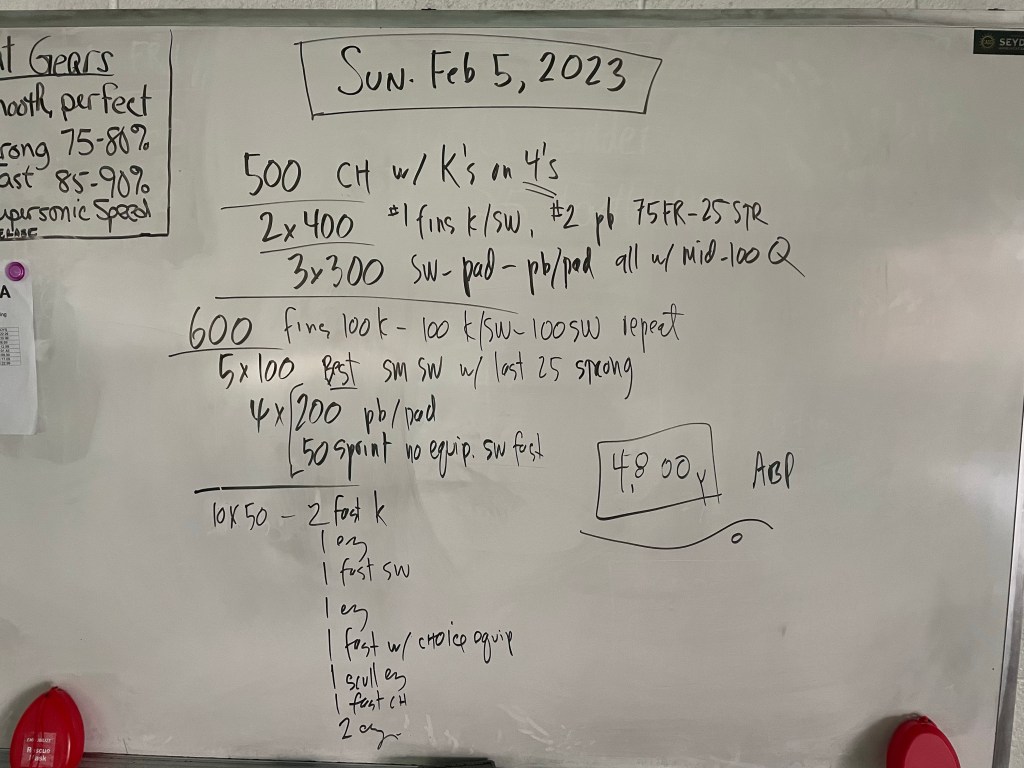 Gears
perfect
75-80%
85-90%
Speed
SUN. Feb 5, 2023
500 CH w/ K's on 4's
2x400 #1 fins k/sw, #2 pb 75FR-25STR
3x300 sw- pad - pb/pad all w/ Mid-100 Q
600 fins 100k - 100 k/sw - 100sw repeat
5x100 Best sm sw w/ last 25 strong
4x 200 pb/pad
50 sprint no equip. sw fast
4,800y ABP
10x50 - 2 fast k
1 ez
1 fast sw
1 ez
1 fast w/ CHOICE equip
1 scull ez
1 fast CH
2 ez
SEYD
A
Rescue
Mask